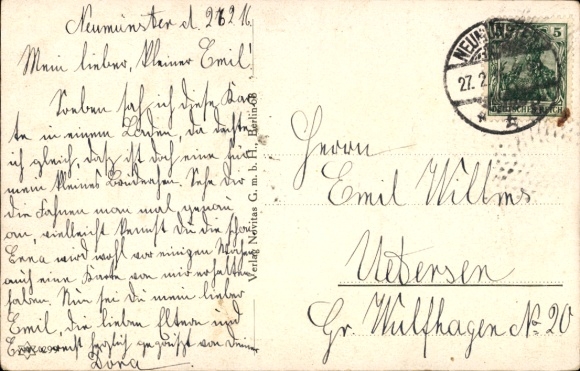 Neumünster d 27.2.16.
Mein lieber, kleiner Emil!
Soeben sah ich diese Kar-
te in einem Laden, da dachte
ich gleich, das ist doch eine für
mein kleines Brüderchen. Sehe dir
die Fahnen man mal genau
an, vielleicht kennst du die schon.
Erna wird wohl vor einigen Wochen
auch eine Karte von mir erhalten
haben. Nun sei du mein lieber
Emil, die lieben Eltern und
Erna recht herzlich gegrüßt von deiner
Dora
Verlag Novitas G. m. b. H., Berlin 68
NEUMÜNSTER
27.2.
5
DEUTSCHES REICH
Herrn
Emil Wilms
Uetersen
Gr. Wulfhagen No 20